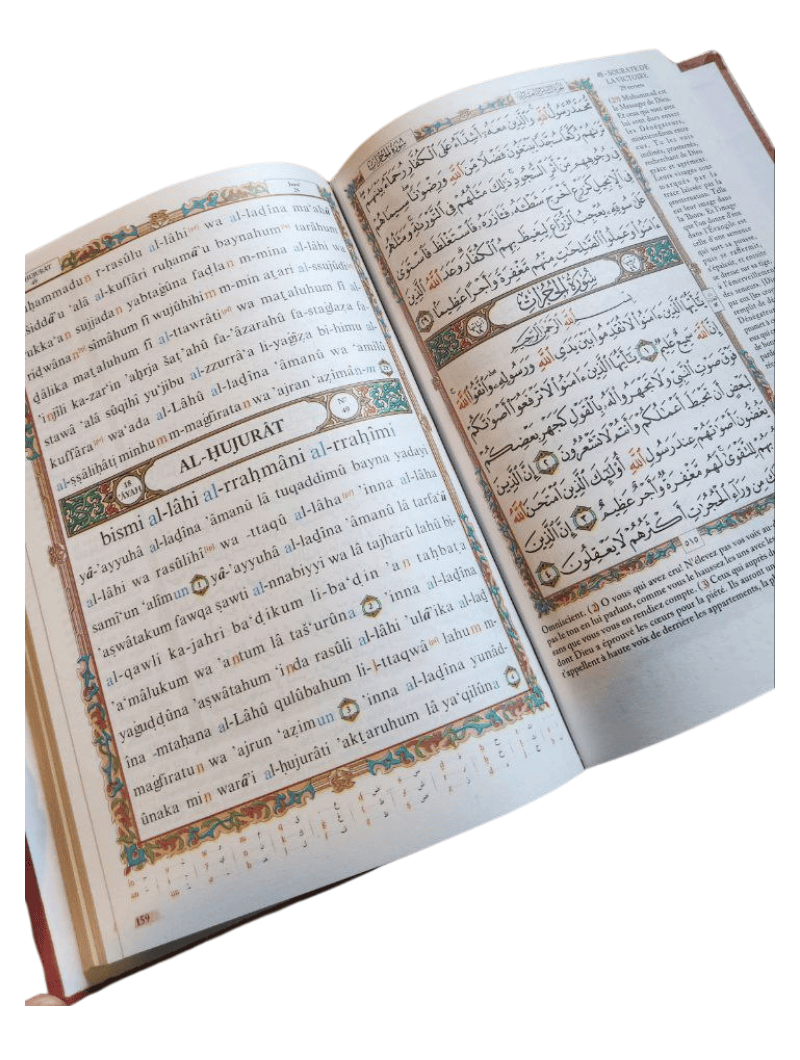 ḤUJURÂT
49
Juzu'
26
ḥammadun r-rasûlu al-lâhi wa al-laḏîna ma'ahû
šiddâ'u 'alâ al-kuffâri ruḥamâ'u baynahum tarâhum
rukka'an sujjadan yabtaġûna faḍlan m-mina al-lâhi wa
riḍwânan sîmâhum fî wujûhihim m-min aṯari al-ssujûdi
ḏâlika maṯaluhum fî al-ttawrâti wa maṯaluhum fî al-
'injîli ka-zar'in 'aḫrja šaṭ'ahû fa-'âzarahû fa-staġlaẓa fa-
stawâ 'alâ sûqihî yu'jibu al-zzurrâ'a li-yaġîẓa bi-himu al-
kuffâra wa'ada al-Lâhû al-laḏîna 'âmanû wa 'amilû
al-ṣṣâliḥâti minhum m-maġfiratan wa 'ajran 'aẓîman-m
18
'ÂYAH
AL-ḤUJURÂT
N°
49
bismi al-lâhi al-rraḥmâni al-rraḥîmi
yâ-'ayyuhâ al-laḏîna 'âmanû lâ tuqaddimû bayna yadayi
al-lâhi wa rasûlihî wa -ttaqû al-lâha 'inna al-lâha
samî'un 'alîmun 1 yâ-'ayyuhâ al-laḏîna 'âmanû lâ tarfa'û
'aṣwâtakum fawqa ṣawti al-nnabiyyi wa lâ tajharû lahû bi-
al-qawli ka-jahri ba'ḍikum li-ba'ḍin 'an taḥbaṭa
'a'mâlukum wa 'antum lâ taš'urûna 2 'inna al-laḏîna
yaġuḍḍûna 'aṣwâtahum 'inda rasûli al-lâhi 'ulâ'ika al-laḏ
îna -mtaḥana al-Lâhû qulûbahum li-l-ttaqwâ lahum m-
maġfiratun wa 'ajrun 'aẓîmun 3 'inna al-laḏîna yunâd-
ûnaka min warâ'i al-ḥujurâti 'akṯaruhum lâ ya'qilûna 4
159
سُورَةُ الْحُجُرَاتِ
مُّحَمَّدٌ رَّسُولُ اللَّهِ وَالَّذِينَ مَعَهُ أَشِدَّاءُ عَلَى الْكُفَّارِ رُحَمَاءُ بَيْنَهُمْ
تَرَاهُمْ رُكَّعًا سُجَّدًا يَبْتَغُونَ فَضْلًا مِّنَ اللَّهِ وَرِضْوَانًا سِيمَاهُمْ
فِي وُجُوهِهِم مِّنْ أَثَرِ السُّجُودِ ذَٰلِكَ مَثَلُهُمْ فِي التَّوْرَاةِ وَمَثَلُهُمْ
فِي الْإِنجِيلِ كَزَرْعٍ أَخْرَجَ شَطْأَهُ فَآزَرَهُ فَاسْتَغْلَظَ فَاسْتَوَىٰ
عَلَىٰ سُوقِهِ يُعْجِبُ الزُّرَّاعَ لِيَغِيظَ بِهِمُ الْكُفَّارَ وَعَدَ اللَّهُ الَّذِينَ
ءَامَنُوا وَعَمِلُوا الصَّالِحَاتِ مِنْهُم مَّغْفِرَةً وَأَجْرًا عَظِيمًا ٢٩
سُورَةُ الْحُجُرَاتِ
بِسْمِ اللَّهِ الرَّحْمَٰنِ الرَّحِيمِ
يَا أَيُّهَا الَّذِينَ ءَامَنُوا لَا تُقَدِّمُوا بَيْنَ يَدَيِ اللَّهِ وَرَسُولِهِ وَاتَّقُوا اللَّهَ
إِنَّ اللَّهَ سَمِيعٌ عَلِيمٌ ١ يَا أَيُّهَا الَّذِينَ ءَامَنُوا لَا تَرْفَعُوا أَصْوَاتَكُمْ
فَوْقَ صَوْتِ النَّبِيِّ وَلَا تَجْهَرُوا لَهُ بِالْقَوْلِ كَجَهْرِ بَعْضِكُمْ
لِبَعْضٍ أَن تَحْبَطَ أَعْمَالُكُمْ وَأَنتُمْ لَا تَشْعُرُونَ ٢ إِنَّ الَّذِينَ
يَغُضُّونَ أَصْوَاتَهُمْ عِندَ رَسُولِ اللَّهِ أُولَٰئِكَ الَّذِينَ امْتَحَنَ اللَّهُ
قُلُوبَهُمْ لِلتَّقْوَىٰ لَهُم مَّغْفِرَةٌ وَأَجْرٌ عَظِيمٌ ٣ إِنَّ الَّذِينَ
يُنَادُونَكَ مِن وَرَاءِ الْحُجُرَاتِ أَكْثَرُهُمْ لَا يَعْقِلُونَ ٤
٥١٥
48 - SOURATE DE
LA VICTOIRE
29 versets
(29) Muhammad est
le Messager de Dieu.
Et ceux qui sont avec
lui sont durs envers
les Dénégateurs,
miséricordieux entre
eux. Tu les vois
inclinés, prosternés,
recherchant de Dieu
grâce et agrément.
Leurs visages sont
marqués par la
trace laissée par la
prosternation. Telle
est leur image dans
la Thora. Et l'image
que l'on donne d'eux
dans l'Évangile est
celle d'une semence
qui sort sa pousse,
puis se raffermit,
s'épaissit, et ensuite
se dresse sur sa tige
à l'émerveillement
des semeurs. [Dieu]
par eux [les croyants]
remplit de dépit
Dénégateurs
Omniscient. (2) Ô vous qui avez cru! N'élevez pas vos voix au-
pas le ton en lui parlant, comme vous le haussez les uns avec les
sans que vous vous en rendiez compte. (3) Ceux qui auprès de
dont Dieu a éprouvé les cœurs pour la piété. Ils auront un
t'appellent à haute voix de derrière les appartements, la pl